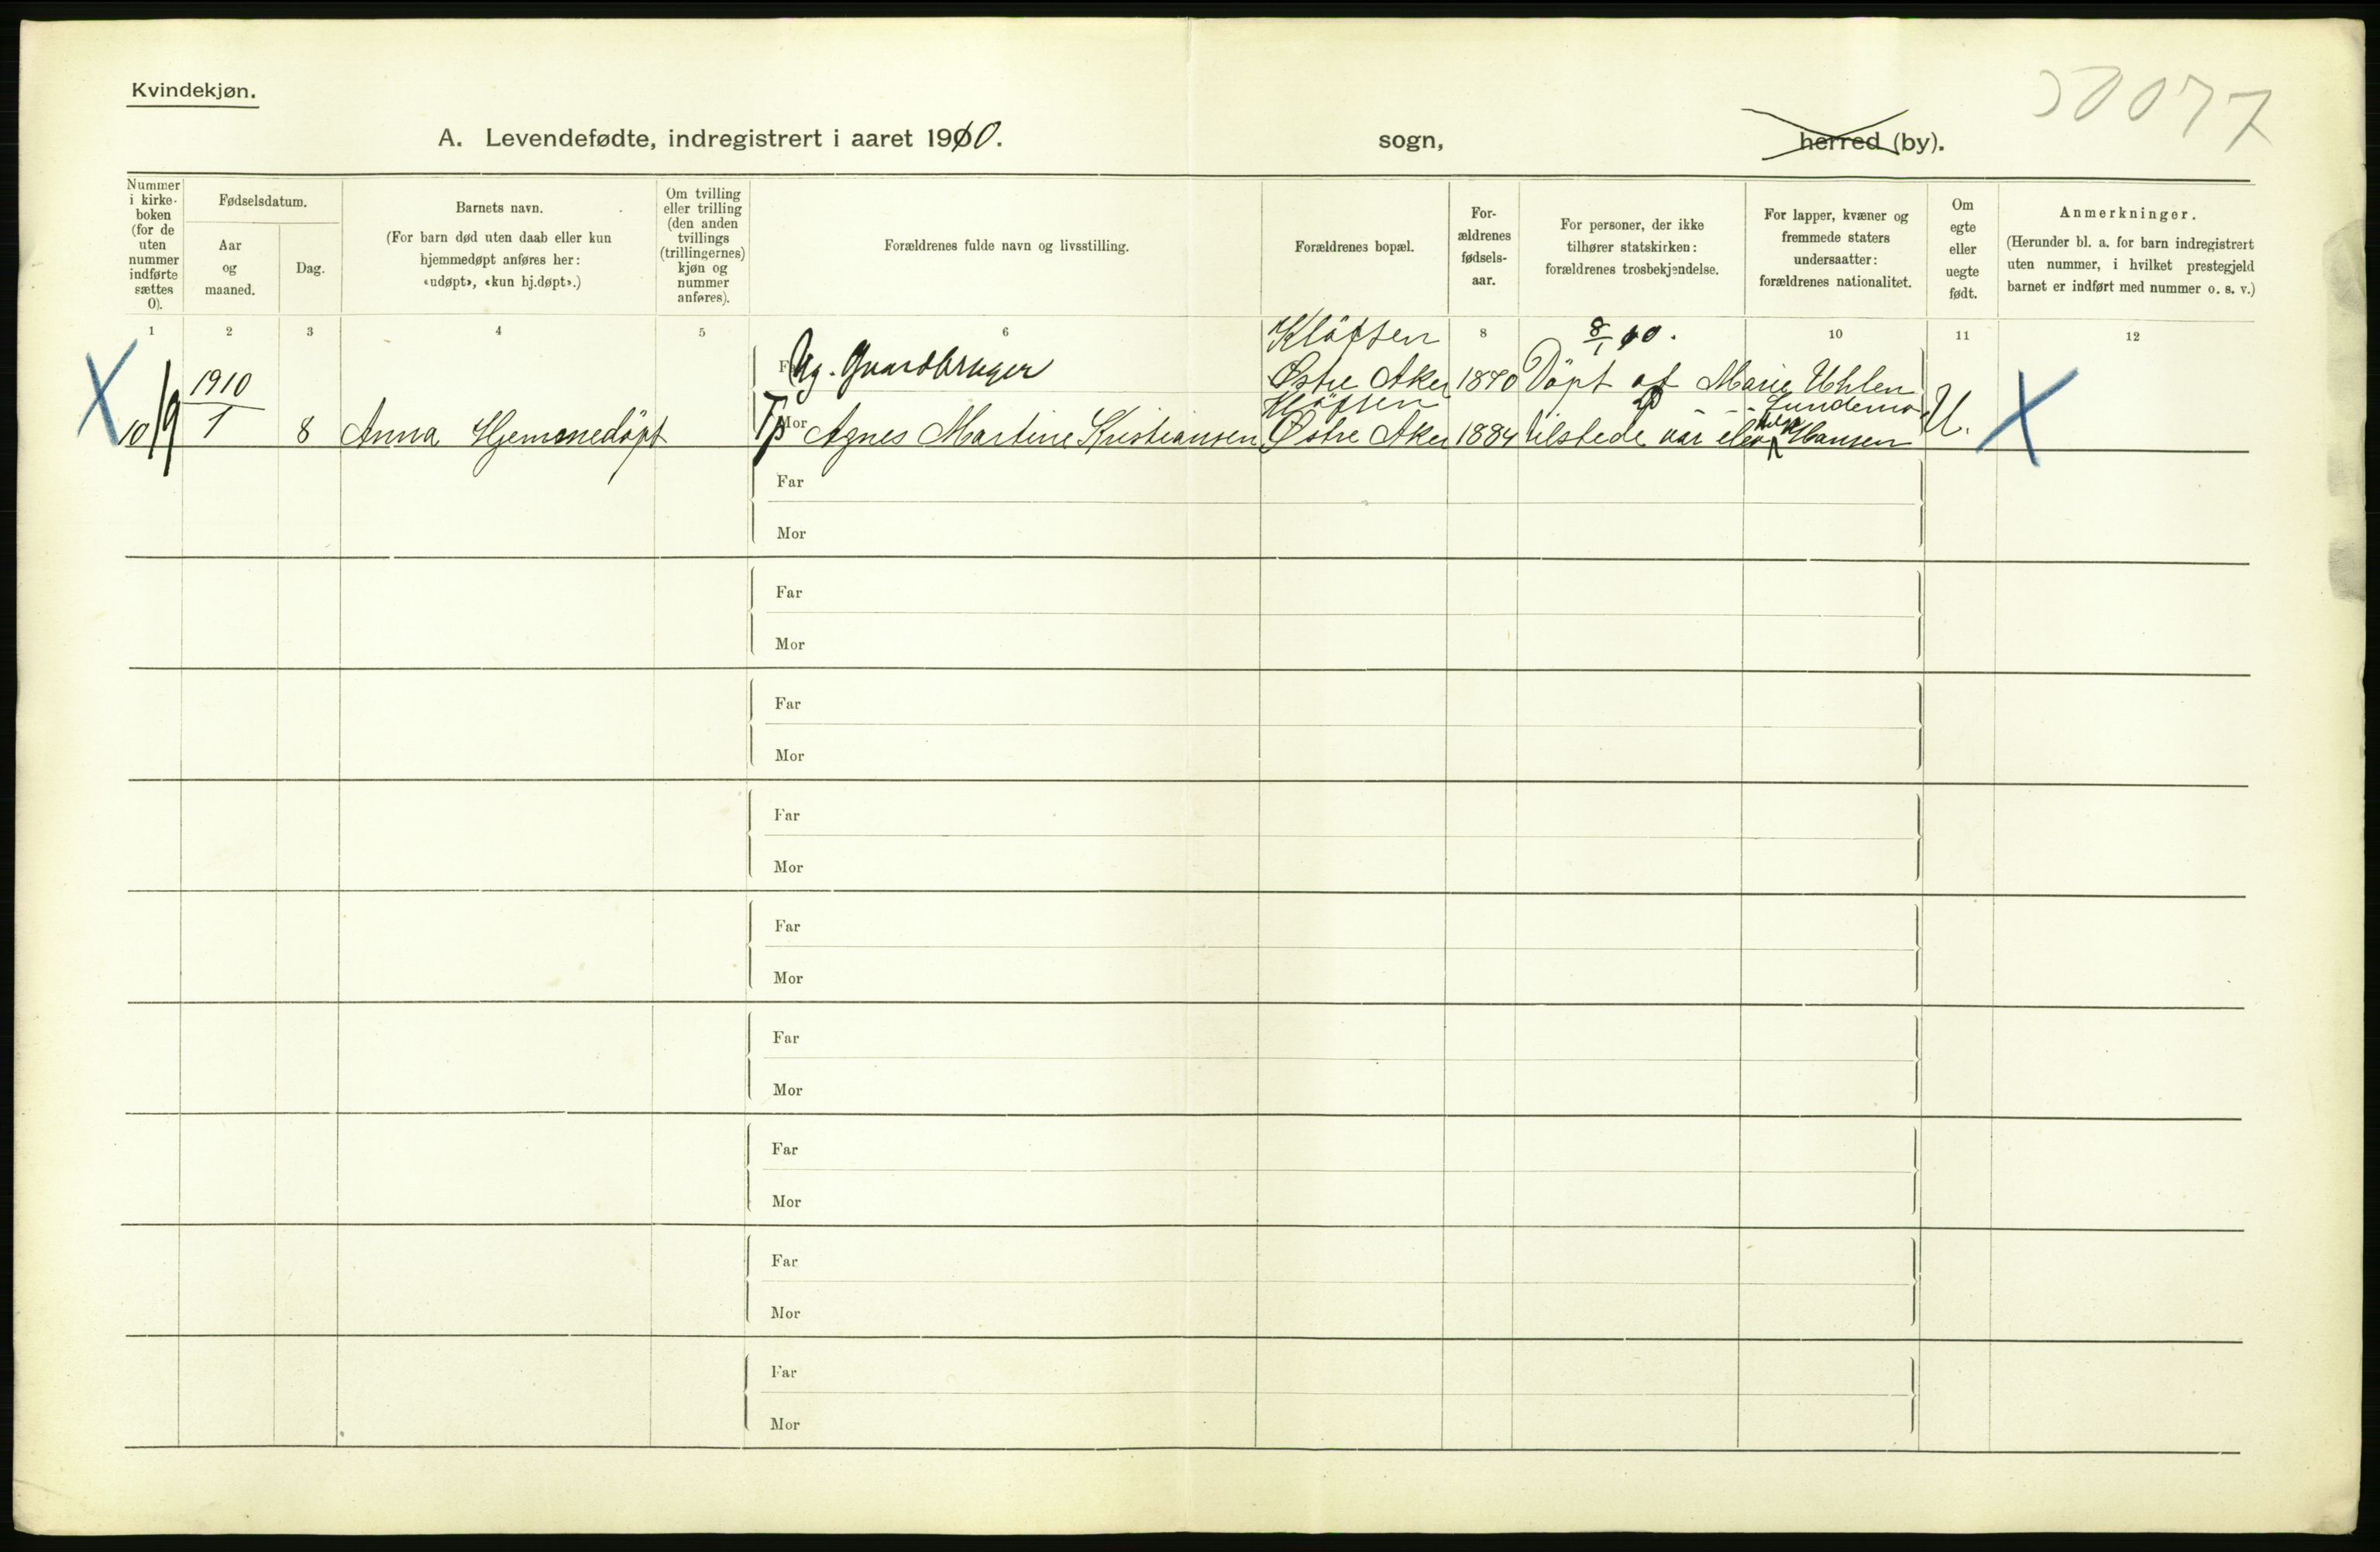 Kvindekjøn.
A. Levendefødte, indregistrert i aaret 1910.
sogn,
herred (by).
Nummer i kirke-boken (for de uten nummer indførte sættes 0).
Fødselsdatum.
Aar og maaned.
Dag.
Barnets navn.
(For barn død uten daab eller kun hjemmedøpt anføres her: «udøpt», «kun hj.døpt».)
Om tvilling eller trilling (den anden tvillings (trillingernes) kjøn og nummer anføres).
Forældrenes fulde navn og livsstilling.
Forældrenes bopæl.
For-ældrenes fødsels-aar.
For personer, der ikke tilhører statskirken: forældrenes trosbekjendelse.
For lapper, kvæner og fremmede staters undersaatter: forældrenes nationalitet.
Om egte eller uegte født.
Anmerkninger.
(Herunder bl. a. for barn indregistrert uten nummer, i hvilket prestegjeld barnet er indført med nummer o. s. v.)
1 2 3 4 5 6 8 10 11 12
Kløfsen 8/1 10.
Far Ug. Gaardbruger Østre Aker 1870 Döpt af Marie Uhlen
1910
1 8 Anna Hjemmedöpt
Mor Tp Agnes Martine Kristiansen Kløfsen Østre Aker 1884 tilstede var elev Hansen U.
Far
Mor
Far
Mor
Far
Mor
Far
Mor
Far
Mor
Far
Mor
Far
Mor
Far
Mor
Far
Mor